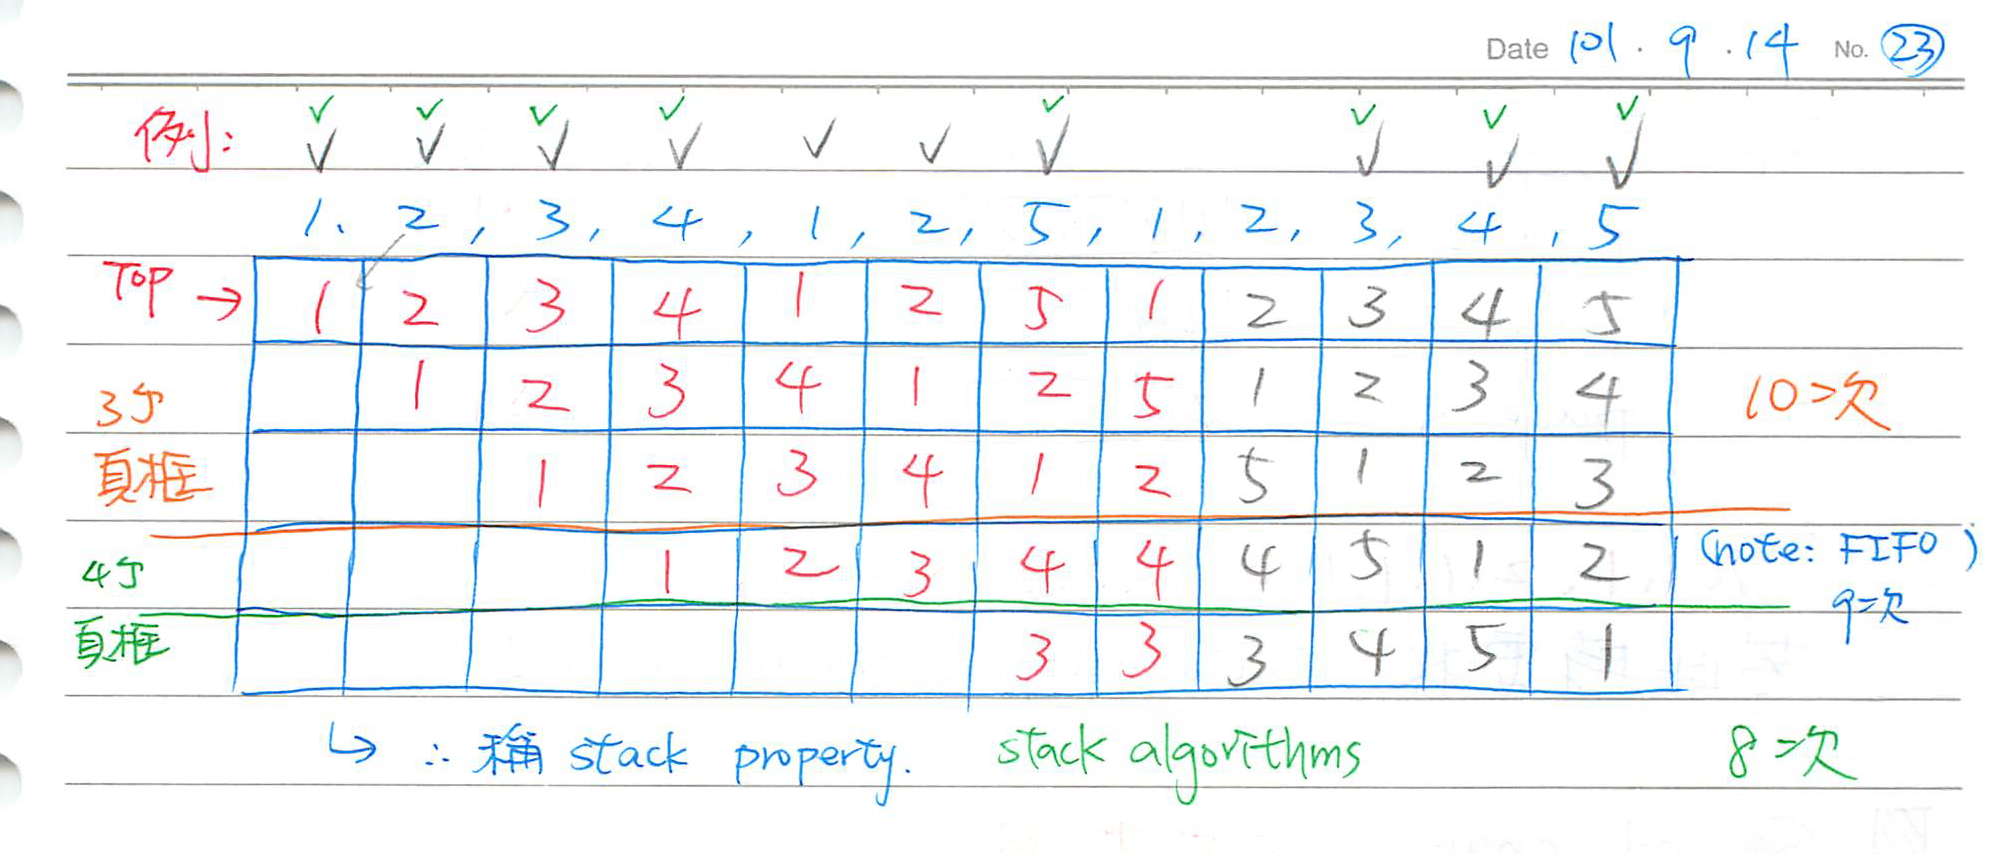 Date 101.9.14 No. 23
例:
✓ ✓ ✓ ✓ ✓ ✓ ✓
✓ ✓ ✓ ✓ ✓ ✓ ✓ ✓ ✓ ✓
1、2, 3, 4, 1, 2, 5, 1, 2, 3, 4, 5
TOP → 1 2 3 4 1 2 5 1 2 3 4 5
3个 1 2 3 4 1 2 5 1 2 3 4 10次
頁框 1 2 3 4 1 2 5 1 2 3
4个 1 2 3 4 4 4 5 1 2 (note: FIFO)
9次
頁框 3 3 3 4 5 1
↳ ∴ 稱 stack property. stack algorithms 8次